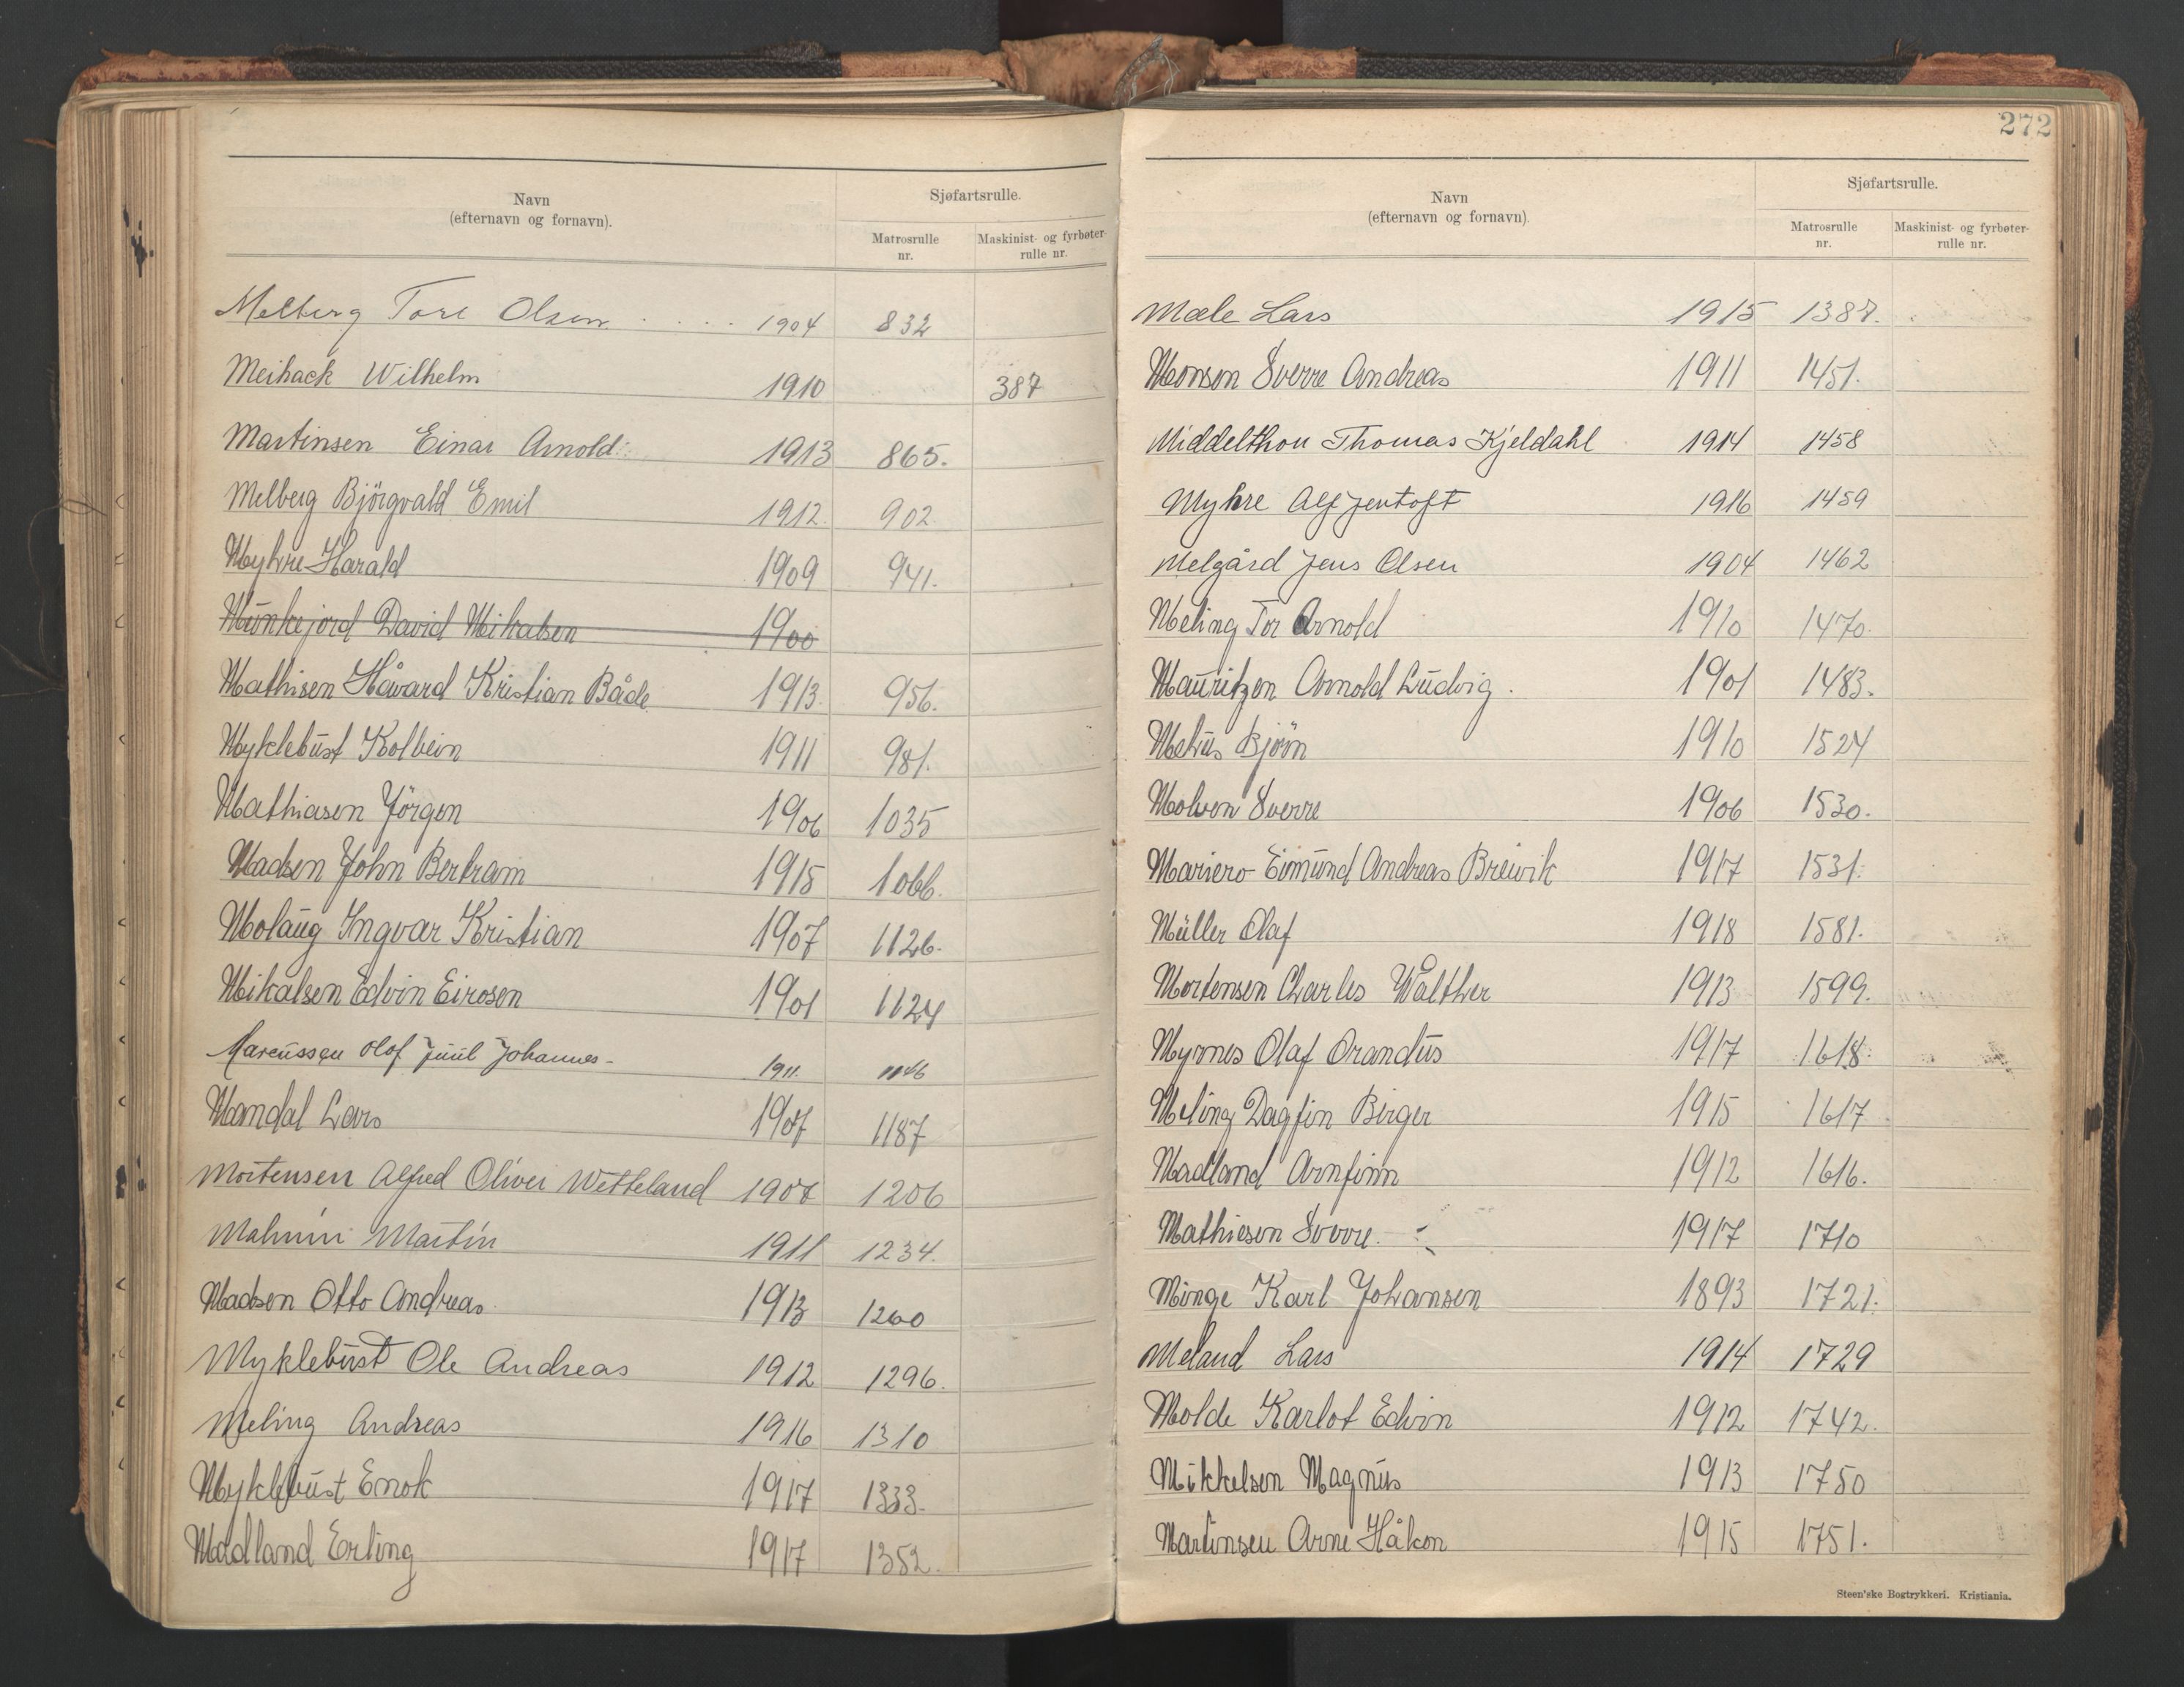 Navn
(efternavn og fornavn).
Sjøfartsrulle.
Matrosrulle nr.
Maskinist- og fyrbøter-rulle nr.
Melberg Tore Olsen . . . . . 1904 832
Meihack Wilhelm 1910 387
Martinsen Einar Arnold 1913 865.
Melberg Björgvald Emil 1912 902
Myhre Harald 1909 941.
Munkejord David Mikalsen 1900
Mathisen Håvard Kristian Både 1913 956.
Myklebust Kolbein 1911 981.
Mathiasen Jörgen 1906 1035
Madsen John Bertram 1915 1066.
Molaug Ingvar Kristian 1907 1126.
Mikalsen Edvin Eirosen 1901 1124
Marcussen Olof Juul Johannes - 1911. 1146
Mandal Lars 1907 1187
Mortensen Alfred Oliver Wetteland 1907 1206
Malmin Martin 1911 1234.
Madsen Otto Andreas 1913 1260
Myklebust Ole Andreas 1912 1296.
Meling Andreas 1916 1310
Myklebust Enok 1917 1333.
Madland Erling 1917 1352.
272
Navn
(efternavn og fornavn).
Sjøfartsrulle.
Matrosrulle nr.
Maskinist- og fyrbøter-rulle nr.
Mæle Lars 1915 1387.
Monsen Sverre Andreas 1911 1451.
Middelthon Thomas Kjeldahl 1914 1458
Myhre Alf Jentoft 1916 1459
Melgård Jens Olsen 1904 1462
Meling Tor Arnold 1910 1470.
Mauritzen Arnold Ludvig. 1901 1483.
Mehus Björn 1910 1524
Molven Sverre 1906 1530.
Mariero Eimund Andreas Breivik 1917 1531.
Müller Olaf 1918 1581.
Mortensen Charles Walther 1913 1599.
Myrnes Olaf Orandus 1917 1618.
Meling Dagfin Birger 1915 1617
Madland Arnfinn 1912 1616.
Mathiesen Sverre. 1917 1710
Minge Karl Johansen 1893 1721.
Meland Lars 1914 1729
Molde Karlot Edvin 1912 1742.
Mikkelsen Magnus 1913 1750
Martinsen Arne Håkon 1915 1751.
Steen'ske Bogtrykkeri. Kristiania.